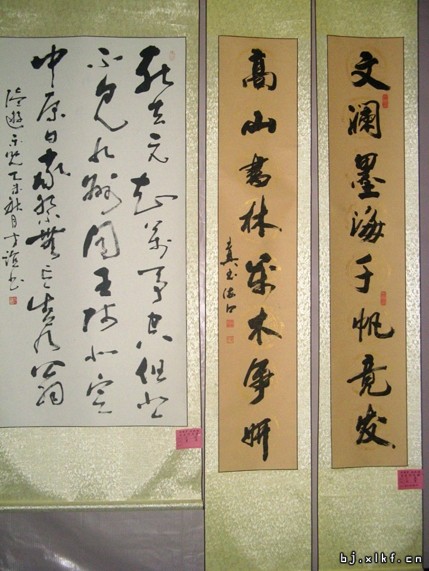 文澜墨海千帆竞发
高山書林万木争妍
死去元知萬事空但悲
不見九州同王师北定
中原日家祭無忘告乃翁
陸遊示兒乙未秋月
bj.xlkf.cn